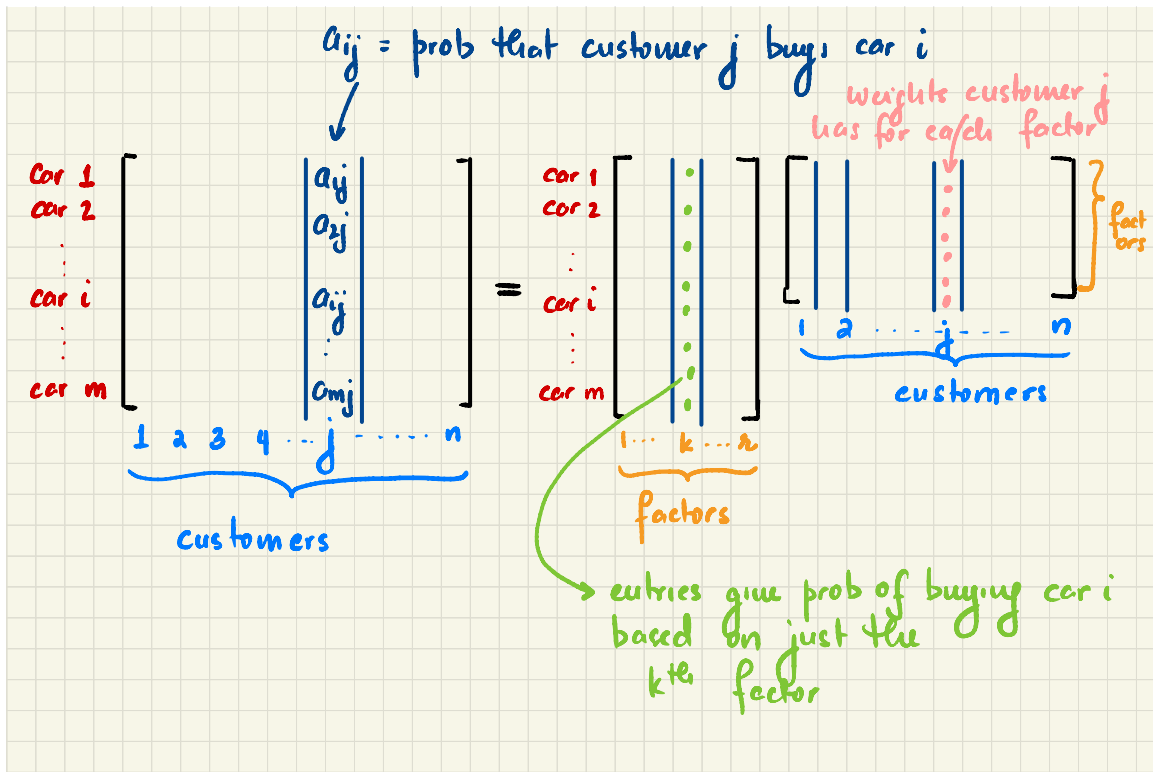 aij = prob that customer j buys car i
weights customer j
has for each factor
car 1
car 2
car i
car m
aij
a2j
aij
amj
1 2 3 4 ... j ........ n
customers
=
car 1
car 2
car i
car m
1 ... k ... r
factors
1 2 .... j ...... n
customers
fact
ors
entries give prob of buying car i
based on just the
kth factor